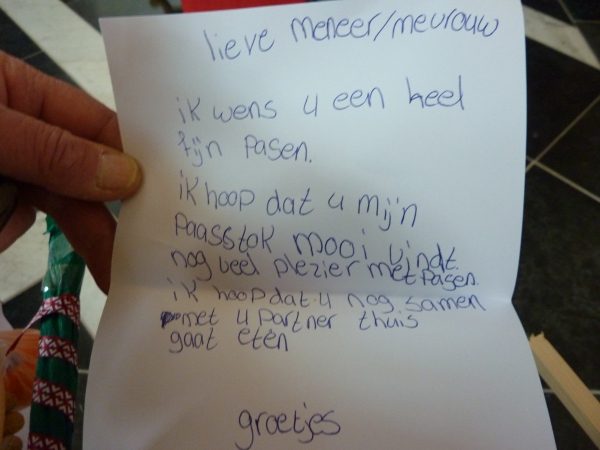 lieve meneer/mevrouw
ik wens u een heel
fijn Pasen.
ik hoop dat u mijn
Paasstok mooi vindt
nog veel plezier met Pasen.
ik hoop dat u nog samen
met u Partner thuis
gaat eten
groetjes